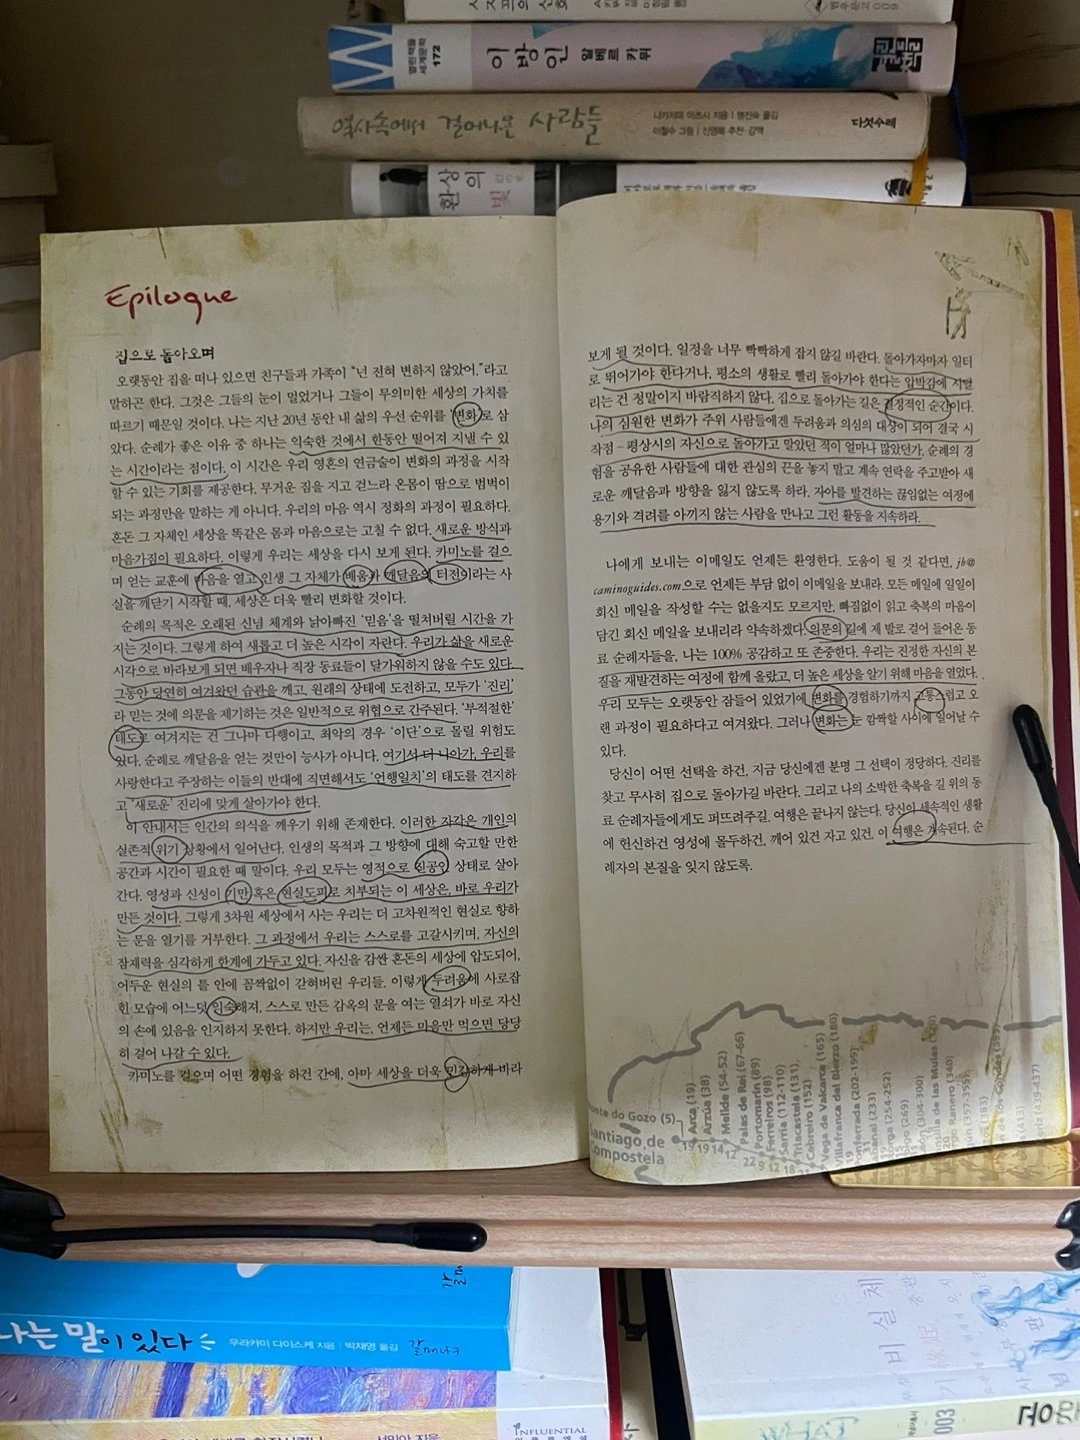 이방인 알베르 카뮈
172
역사속에서 걸어나온 사람들
나카지마 아츠시 지음 | 명진숙 옮김
이철수 그림 | 신영복 추천·감역
다섯수레
환상의 빛
Epilogue
집으로 돌아오며
오랫동안 집을 떠나 있으면 친구들과 가족이 “넌 전혀 변하지 않았어.”라고
말하곤 한다. 그것은 그들의 눈이 멀었거나 그들이 무의미한 세상의 가치를
따르기 때문일 것이다. 나는 지난 20년 동안 내 삶의 우선 순위를 '변화'로 삼
았다. 순례가 좋은 이유 중 하나는 익숙한 것에서 한동안 떨어져 지낼 수 있
는 시간이라는 점이다. 이 시간은 우리 영혼의 연금술이 변화의 과정을 시작
할 수 있는 기회를 제공한다. 무거운 짐을 지고 걷느라 온몸이 땀으로 범벅이
되는 과정만을 말하는 게 아니다. 우리의 마음 역시 정화의 과정이 필요하다.
혼돈 그 자체인 세상을 똑같은 몸과 마음으로는 고칠 수 없다. 새로운 방식과
마음가짐이 필요하다. 이렇게 우리는 세상을 다시 보게 된다. 카미노를 걸으
며 얻는 교훈에 마음을 열고 인생 그 자체가 배움과 깨달음의 터전이라는 사
실을 깨닫기 시작할 때, 세상은 더욱 빨리 변화할 것이다.
순례의 목적은 오래된 신념 체계와 낡아빠진 '믿음'을 떨쳐버릴 시간을 가
지는 것이다. 그렇게 하여 새롭고 더 높은 시각이 자란다. 우리가 삶을 새로운
시각으로 바라보게 되면 배우자나 직장 동료들이 달가워하지 않을 수도 있다.
그동안 당연히 여겨왔던 습관을 깨고, 원래의 상태에 도전하고, 모두가 '진리'
라 믿는 것에 의문을 제기하는 것은 일반적으로 위협으로 간주된다. '부적절한'
태도로 여겨지는 건 그나마 다행이고, 최악의 경우 '이단'으로 몰릴 위험도
있다. 순례로 깨달음을 얻는 것만이 능사가 아니다. 여기서 더 나아가, 우리를
사랑한다고 주장하는 이들의 반대에 직면해서도 '언행일치'의 태도를 견지하
고 '새로운' 진리에 맞게 살아가야 한다.
이 안내서는 인간의 의식을 깨우기 위해 존재한다. 이러한 자각은 개인의
실존적 위기 상황에서 일어난다. 인생의 목적과 그 방향에 대해 숙고할 만한
공간과 시간이 필요한 때 말이다. 우리 모두는 영적으로 진공인 상태로 살아
간다. 영성과 신성이 기만 혹은 현실도피로 치부되는 이 세상은, 바로 우리가
만든 것이다. 그렇게 3차원 세상에서 사는 우리는 더 고차원적인 현실로 향하
는 문을 열기를 거부한다. 그 과정에서 우리는 스스로를 고갈시키며, 자신의
잠재력을 심각하게 한계에 가두고 있다. 자신을 감싼 혼돈의 세상에 압도되어,
어두운 현실의 틀 안에 꼼짝없이 갇혀버린 우리들. 이렇게 두려움에 사로잡
힌 모습에 어느덧 익숙해져, 스스로 만든 감옥의 문을 여는 열쇠가 바로 자신
의 손에 있음을 인지하지 못한다. 하지만 우리는, 언제든 마음만 먹으면 당당
히 걸어 나갈 수 있다.
카미노를 걸으며 어떤 경험을 하건 간에, 아마 세상을 더욱 민감하게 바라
보게 될 것이다. 일정을 너무 빡빡하게 잡지 않길 바란다. 돌아가자마자 일터
로 뛰어가야 한다거나, 평소의 생활로 빨리 돌아가야 한다는 압박감에 시달
리는 건 정말이지 바람직하지 않다. 집으로 돌아가는 길은 결정적인 순간이다.
나의 심원한 변화가 주위 사람들에겐 두려움과 의심의 대상이 되어 결국 시
작점 – 평상시의 자신으로 돌아가고 말았던 적이 얼마나 많았던가. 순례의 경
험을 공유한 사람들에 대한 관심의 끈을 놓지 말고 계속 연락을 주고받아 새
로운 깨달음과 방향을 잃지 않도록 하라. 자아를 발견하는 끊임없는 여정에
용기와 격려를 아끼지 않는 사람을 만나고 그런 활동을 지속하라.
나에게 보내는 이메일도 언제든 환영한다. 도움이 될 것 같다면, jb@
caminoguides.com으로 언제든 부담 없이 이메일을 보내라. 모든 메일에 일일이
회신 메일을 작성할 수는 없을지도 모르지만, 빠짐없이 읽고 축복의 마음이
담긴 회신 메일을 보내리라 약속하겠다. 의문의 길에 제 발로 걸어 들어온 동
료 순례자들을, 나는 100% 공감하고 또 존중한다. 우리는 진정한 자신의 본
질을 재발견하는 여정에 함께 올랐고, 더 높은 세상을 알기 위해 마음을 열었다.
우리 모두는 오랫동안 잠들어 있었기에 변화를 경험하기까지 고통스럽고 오
랜 과정이 필요하다고 여겨왔다. 그러나 변화는 눈 깜짝할 사이에 일어날 수
있다.
당신이 어떤 선택을 하건, 지금 당신에겐 분명 그 선택이 정당하다. 진리를
찾고 무사히 집으로 돌아가길 바란다. 그리고 나의 소박한 축복을 길 위의 동
료 순례자들에게도 퍼뜨려주길. 여행은 끝나지 않는다. 당신이 세속적인 생활
에 헌신하건 영성에 몰두하건, 깨어 있건 자고 있건, 이 여행은 계속된다. 순
례자의 본질을 잊지 않도록.
Monte do Gozo (5)
Santiago de
Compostela
Arca (19)
Arzúa (38)
Melide (54-52)
Palas de Rei (67-66)
Portomarín (89)
Ferreiros (98)
Sarria (112-110)
Triacastela (131)
Cebreiro (152)
Vega de Valcarce (165)
Villafranca del Bierzo (180)
Ponferrada (202-199)
19 19 14 12 22 9 12 18
나는 말이 있다
우라카미 다이스케 지음 | 박재영 옮김
갈매나무
INFLUENTIAL
003
WHAT